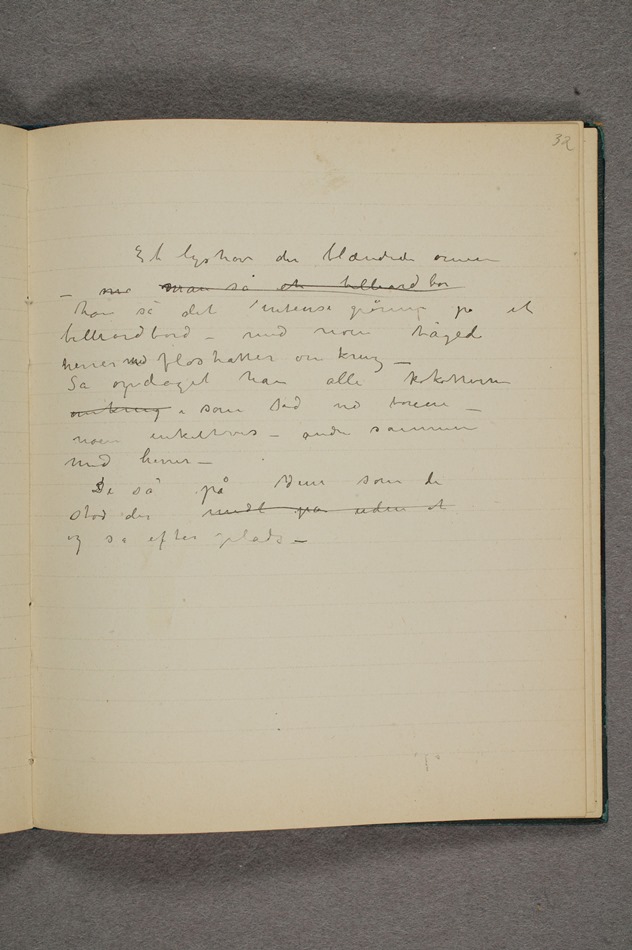 32
Et lyshav der blændede øinene
– man så et billiardbor
han så det intense grønne på et
billiardbord – med noen
herrer med floshatter omkring –
Så opdaget han alle kokottene
omkring som sad ved bordene –
noen enkeltvis – andre sammen
med herrer –
De så på dem som de
stod der uden at
og så efter plads –